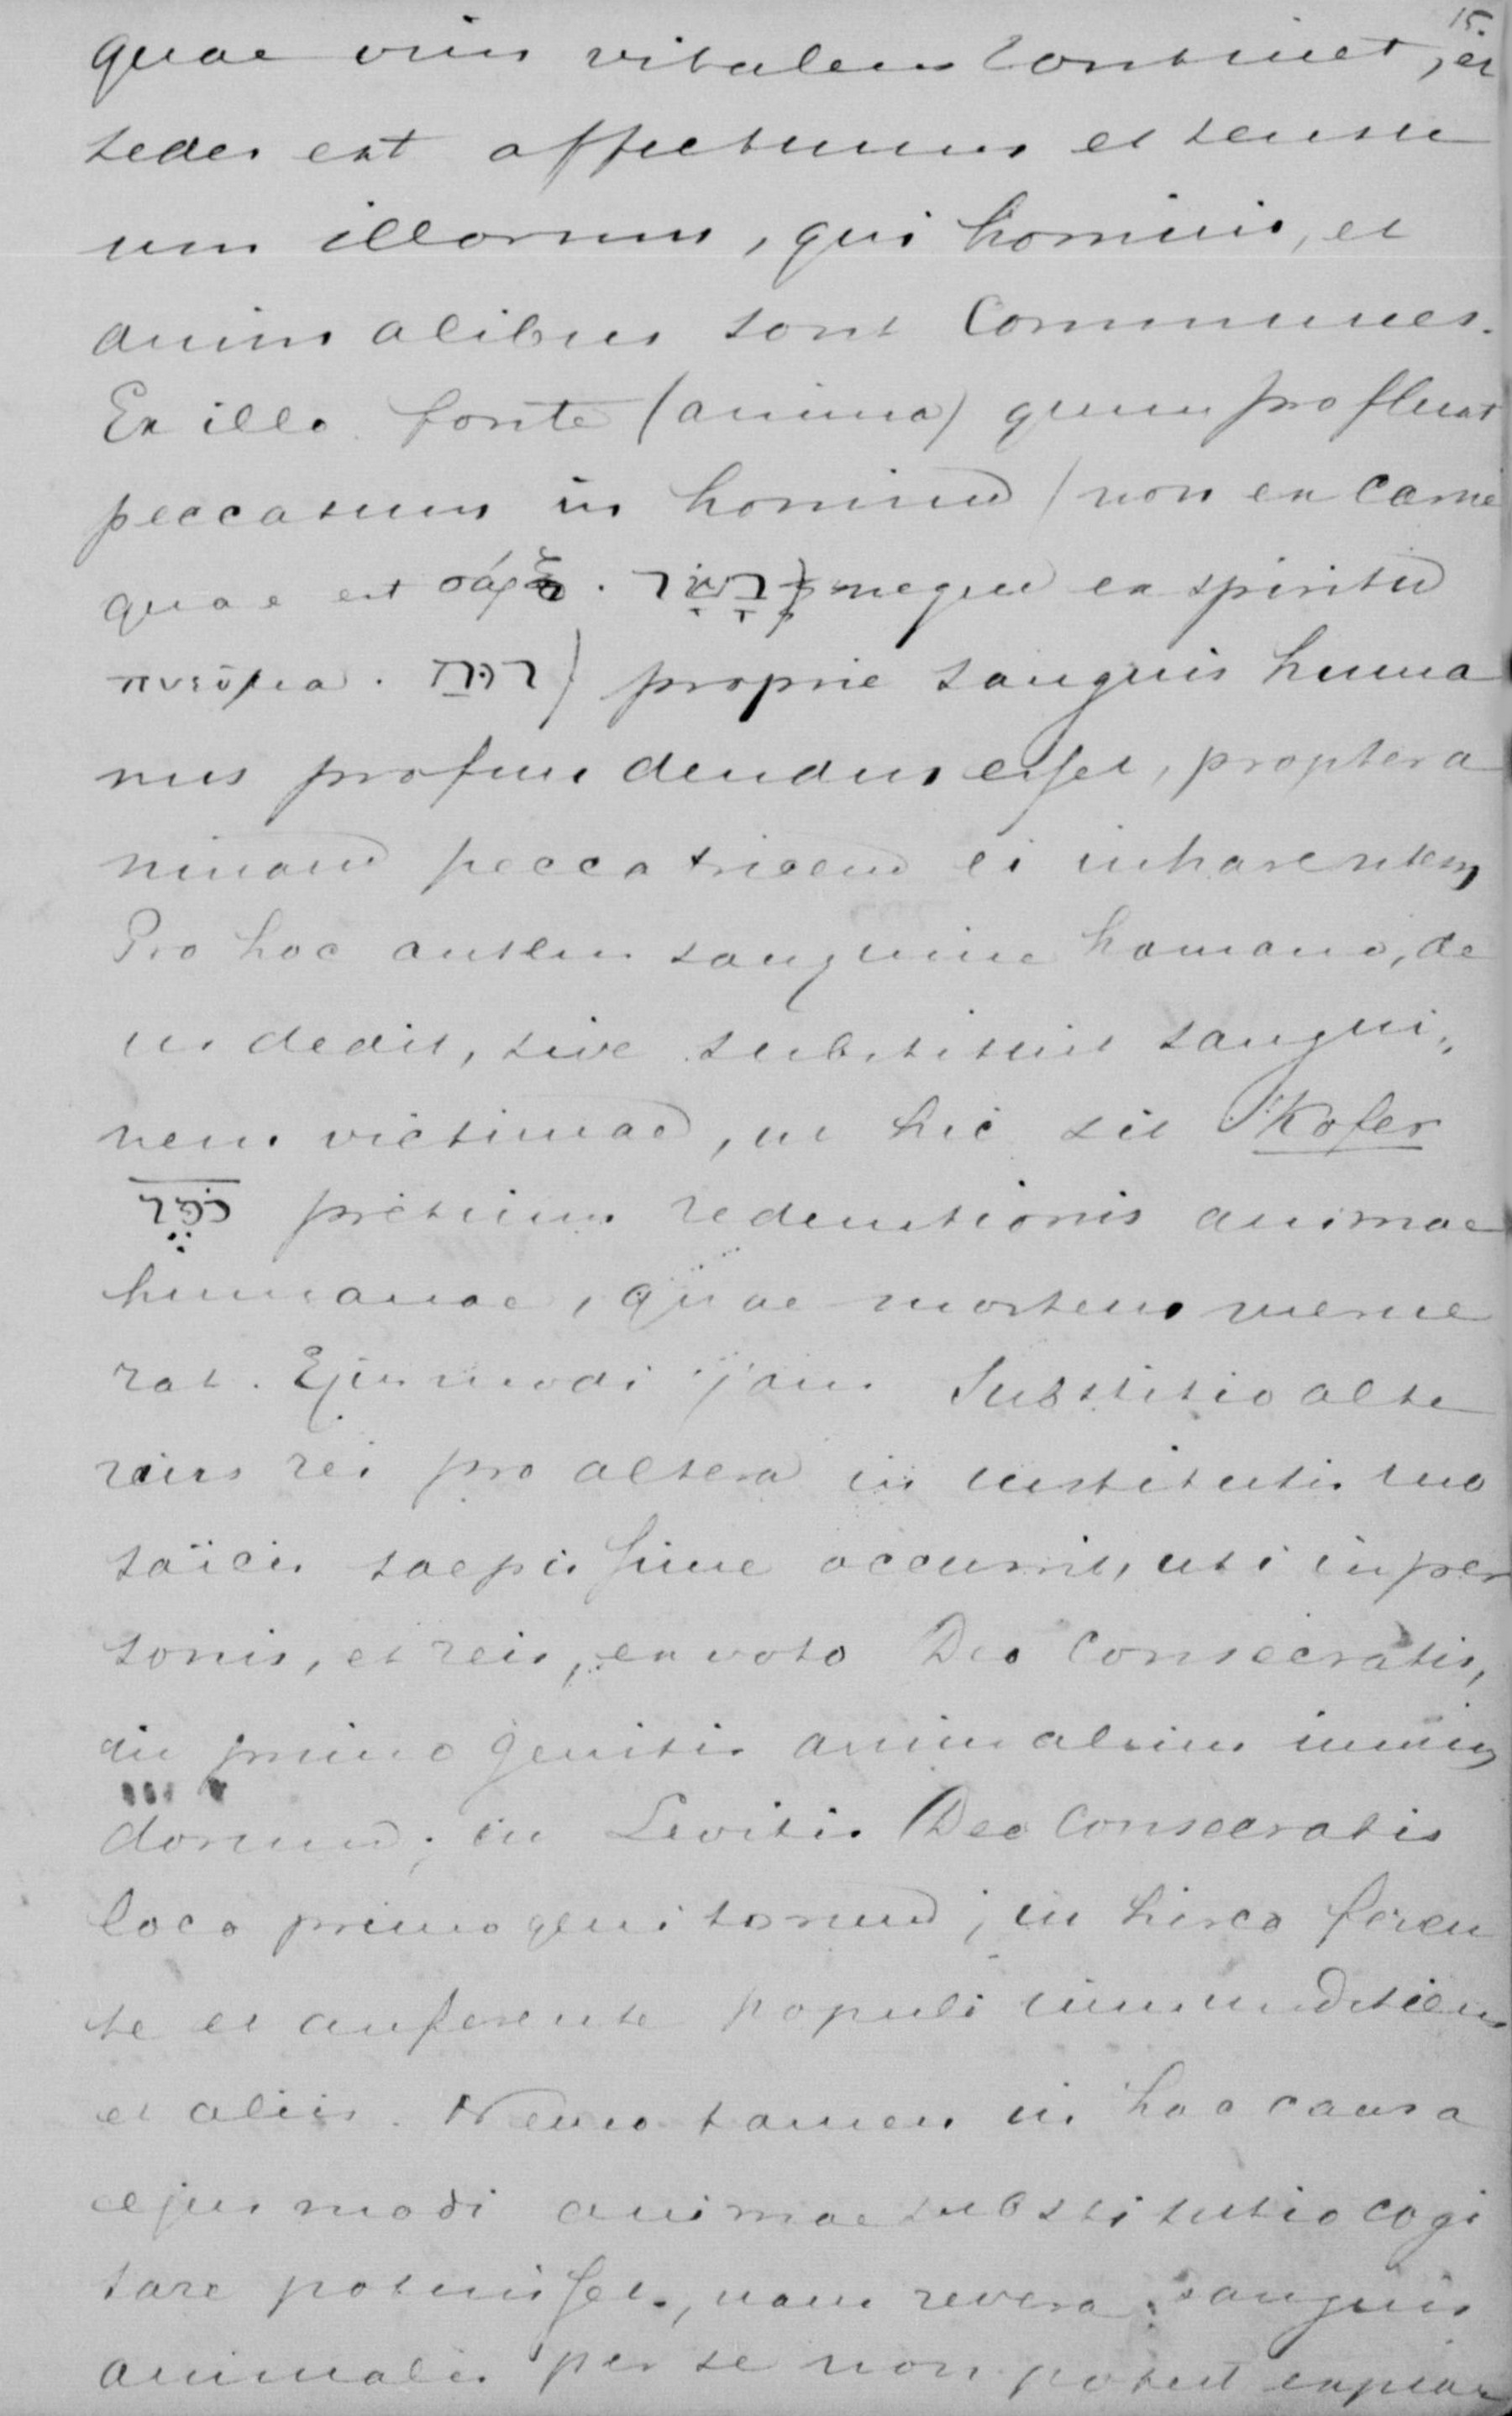 15.
quae vim vitalem continet, et
sedes est affectuum et sensu
um illorum, qui hominis, et
animalibus sunt communes.
Ex illo fonte (anima) quum profluat
peccatum in homine (non ex carne
quae est σάρξ. בָּשָׂר) neque ex spiritu
πνεῦμα. רוּחַ) proprie sanguis huma
nus profundendus esset, propter a
nimam peccatricem ei inhaerentem
Pro hoc autem sanguine humano, de
us dedit, sive substituit sangui„
nem victimae, ut hic sit Kofer
כֹּפֶר pretium redemtionis animae
humanae, quae mortem merue
rat. Ejusmodi jam Substitio alte
rius rei pro altera in institutis mo
saïcis saepissime occurrit, uti in per
sonis, et reis, ex voto Deo consecratis,
in primogenitis animalium immun
dorum; in Levitis Deo Consecratis
loco primogenitorum; in hirco feren
te et auferente populi immunditiem
et aliis. Nemo tamen in hac causa
ejusmodi animae substitutio cogi
tare potuisset, nam revera sanguis
animalis per se non potest expiare